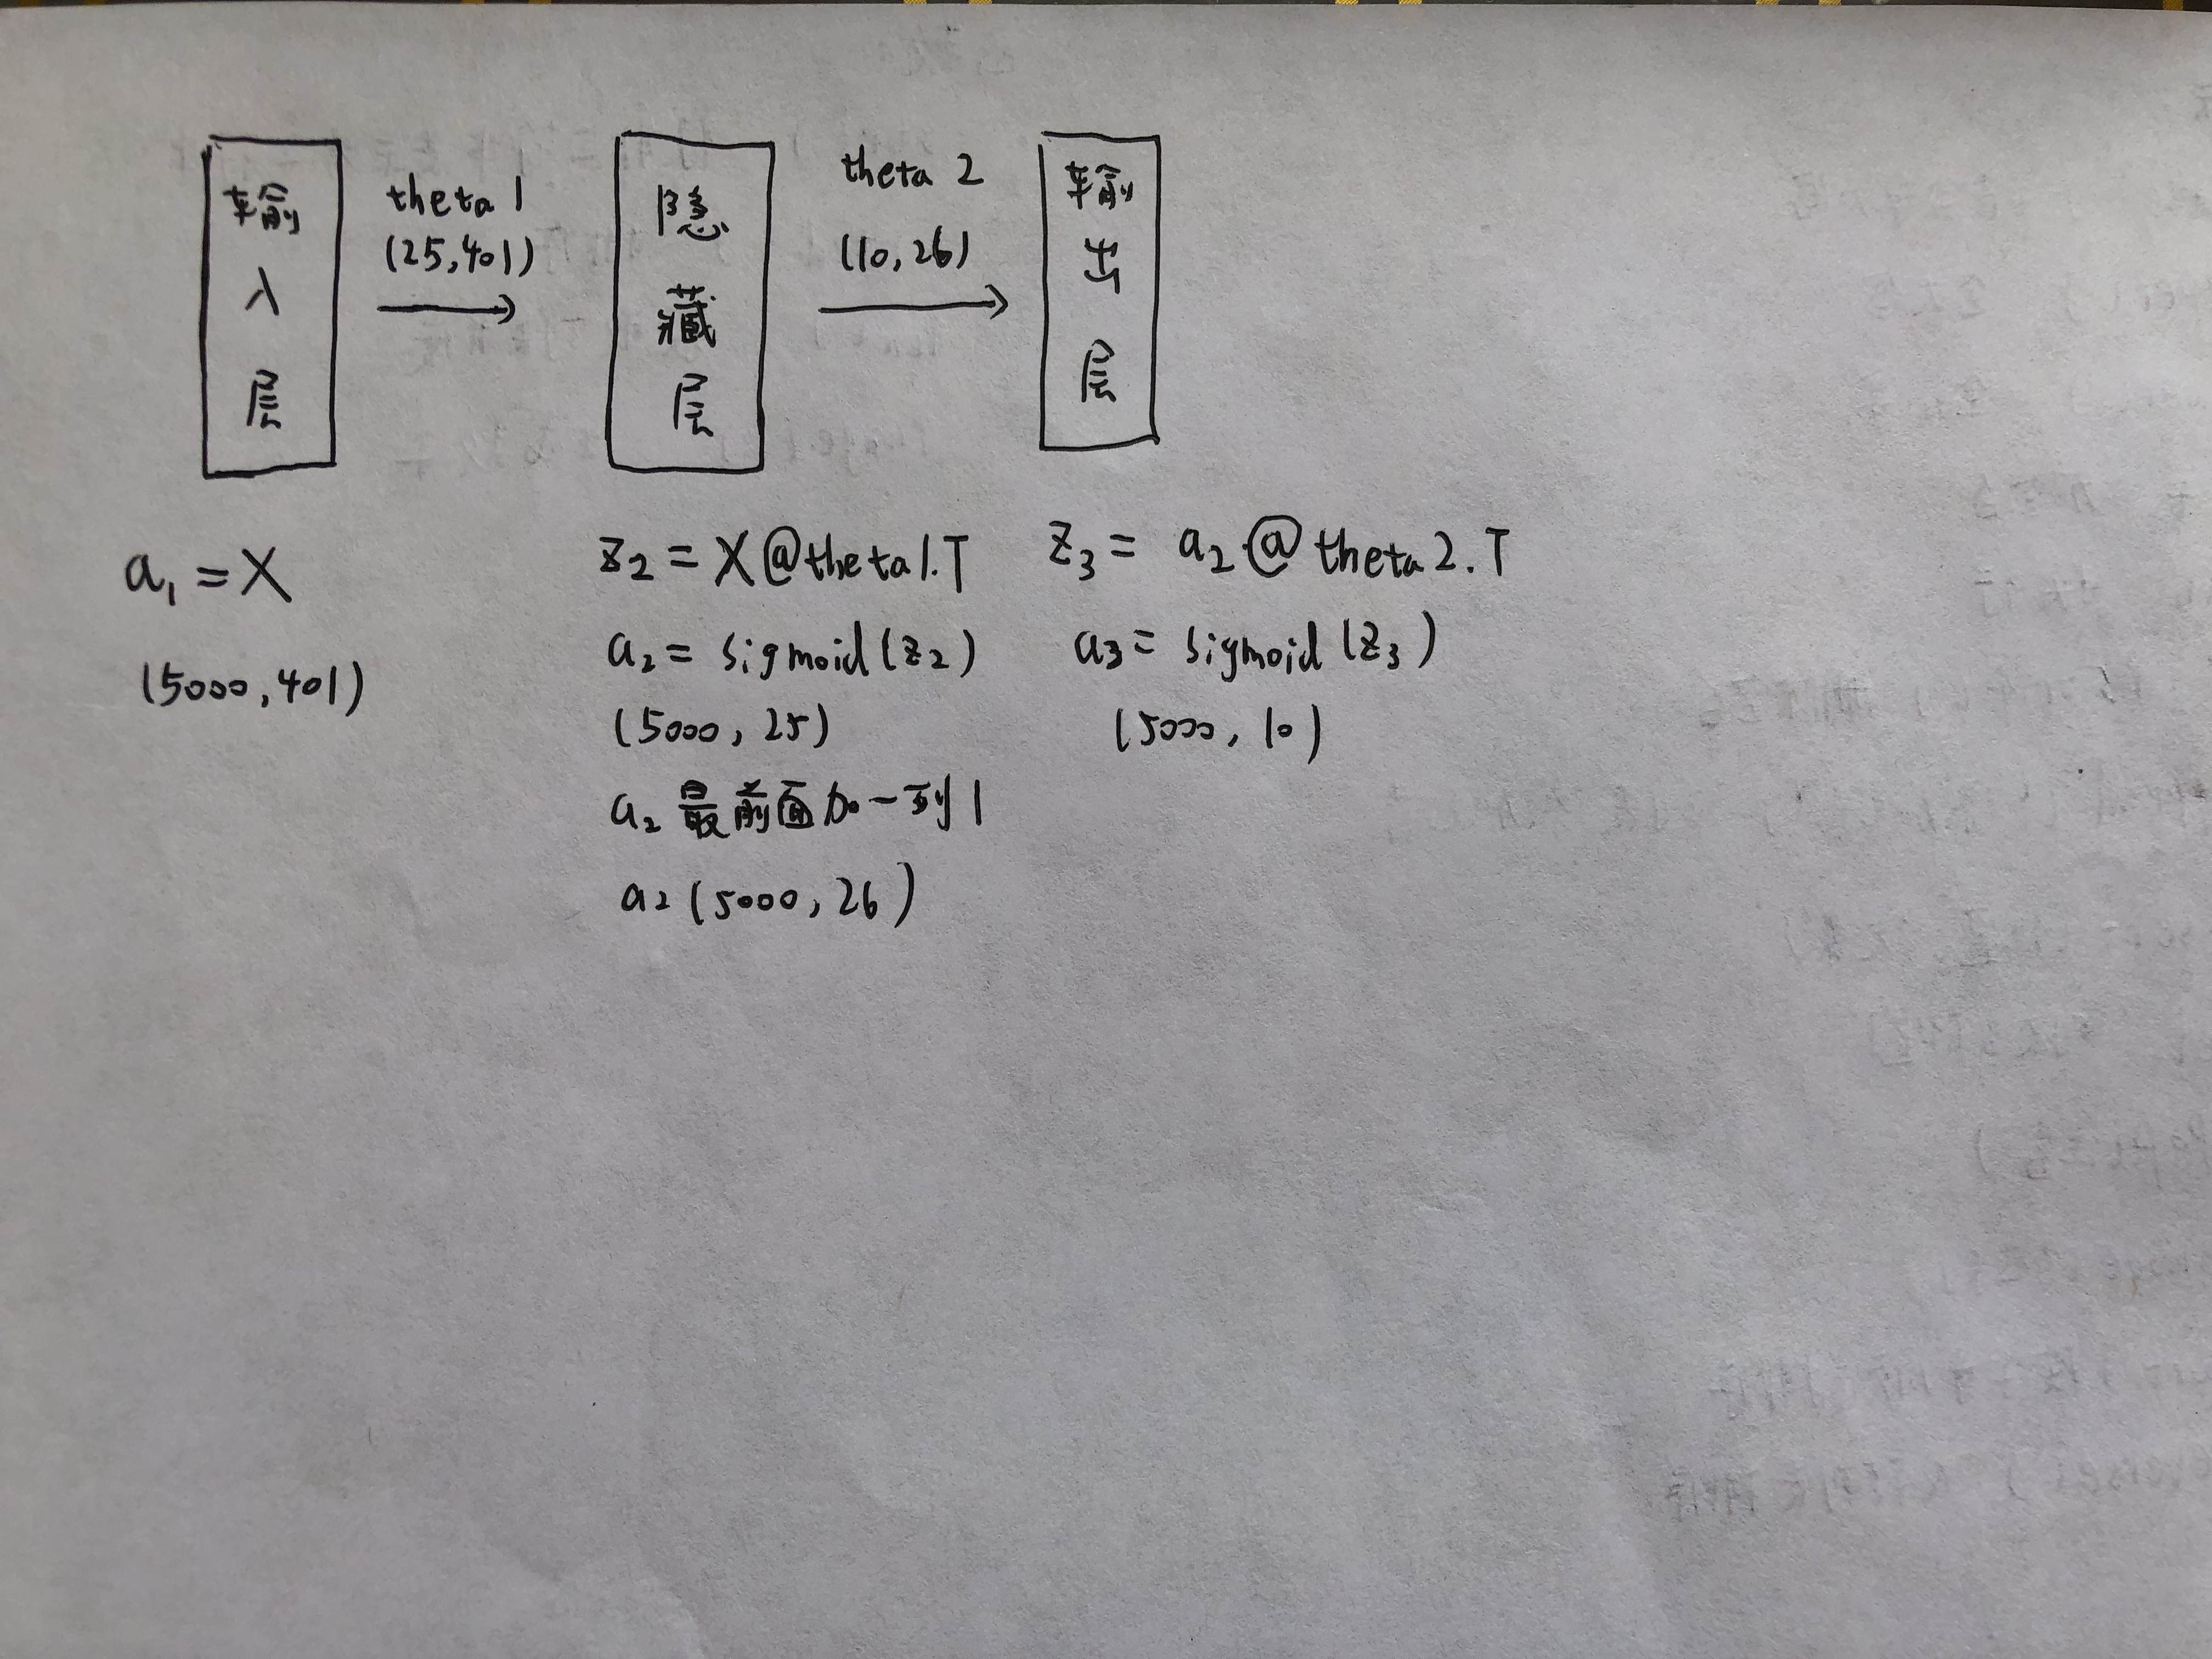 输入层
theta 1
(25,401)
隐藏层
theta 2
(10,26)
输出层
a₁ = X
(5000,401)
z₂ = X@theta1.T
a₂ = sigmoid(z₂)
(5000, 25)
a₂ 最前面加一列1
a₂(5000,26)
z₃ = a₂@theta2.T
a₃ = sigmoid(z₃)
(5000, 10)